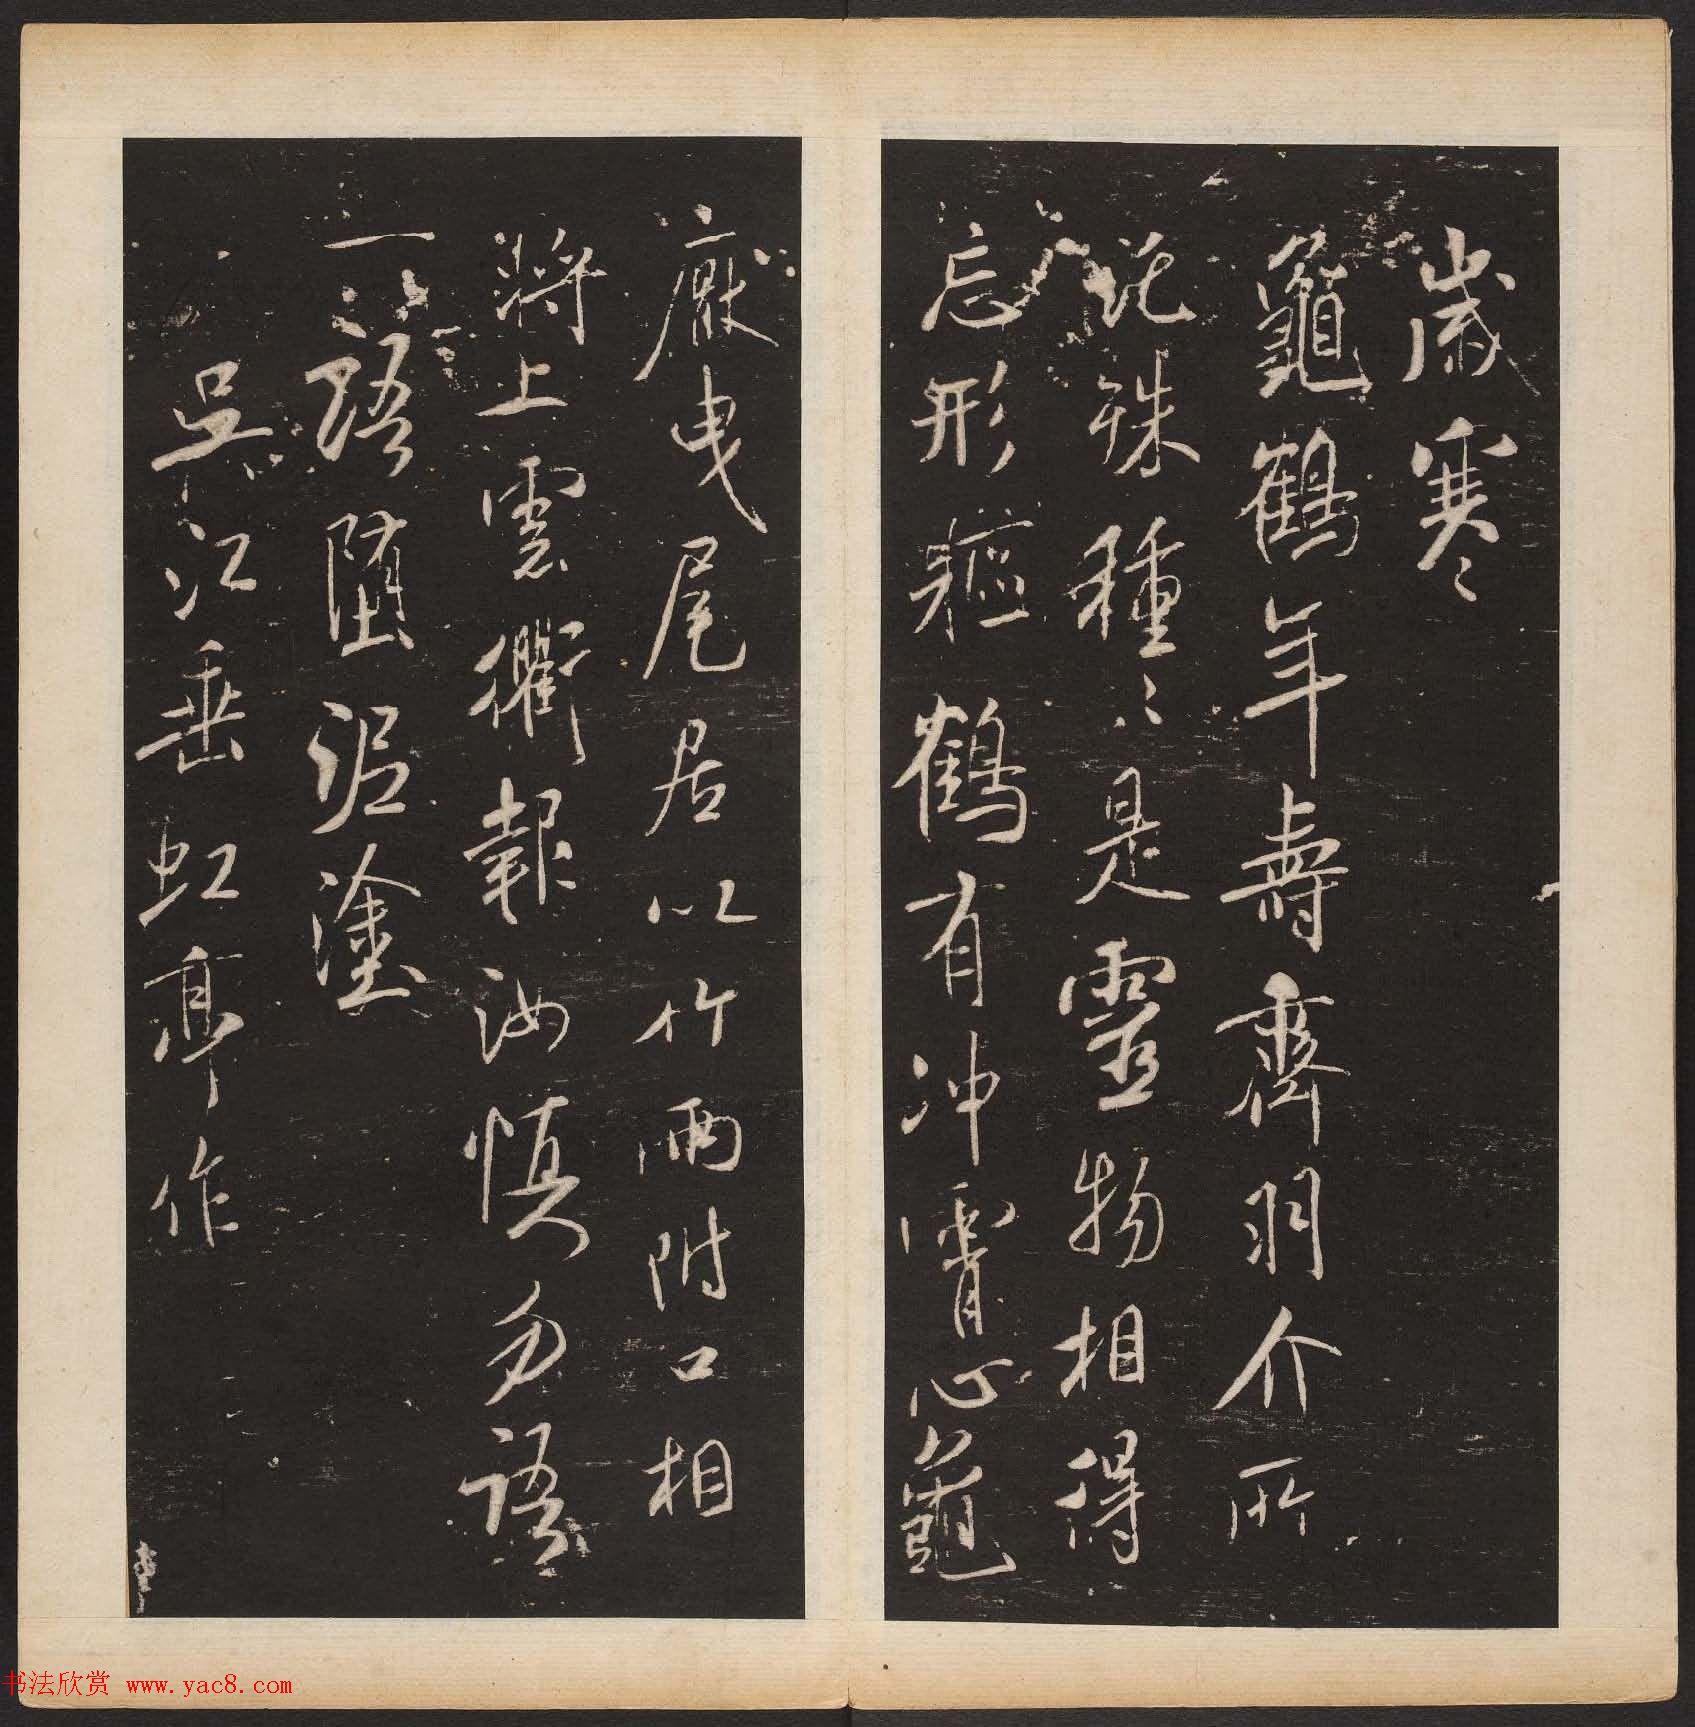 歲寒
龜鶴年壽齊羽介所
託殊種種是靈物相得
忘形軀鶴有冲霄心龜
厭曳尾居以竹兩附口相
將上雲衢報汝慎勿語
一語墮泥塗
吴江垂虹亭作
书法欣赏 www.yac8.com